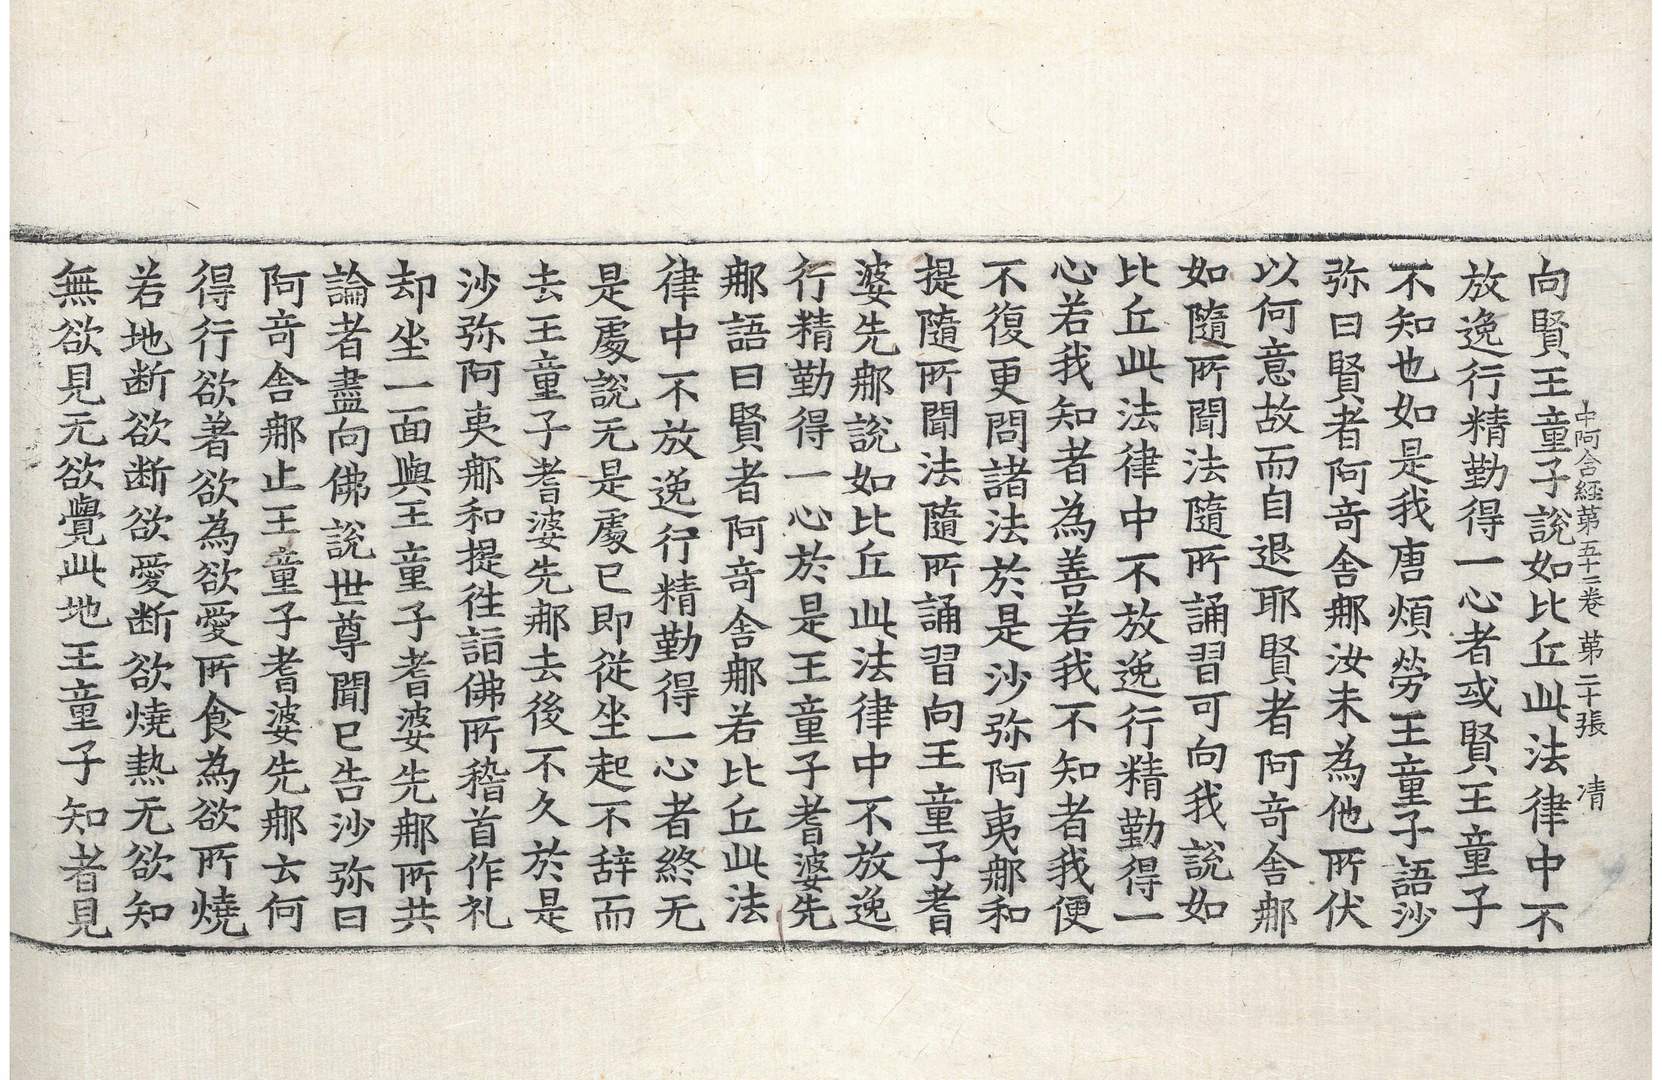 中阿含経第五十二卷 第二十張 清
向賢王童子說如比丘此法律中不
放逸行精勤得一心者或賢王童子
不知也如是我唐煩勞王童子語沙
弥曰賢者阿竒舍那汝未為他所伏
以何意故而自退耶賢者阿竒舍那
如隨所聞法隨所誦習可向我說如
比丘此法律中不放逸行精勤得一
心若我知者為善若我不知者我便
不復更問諸法於是沙弥阿夷那和
提隨所聞法隨所誦習向王童子耆
婆先那說如比丘此法律中不放逸
行精勤得一心於是王童子耆婆先
那語曰賢者阿竒舍那若比丘此法
律中不放逸行精勤得一心者終无
是處說无是處已即從坐起不辞而
去王童子耆婆先那去後不久於是
沙弥阿夷那和提徃詣佛所稽首作礼
却坐一面與王童子耆婆先那所共
論者盡向佛說世尊聞已告沙弥曰
阿竒舍那止王童子耆婆先那云何
得行欲著欲為欲愛所食為欲所燒
若地断欲断欲愛断欲燒熱无欲知
無欲見无欲覺此地王童子知者見